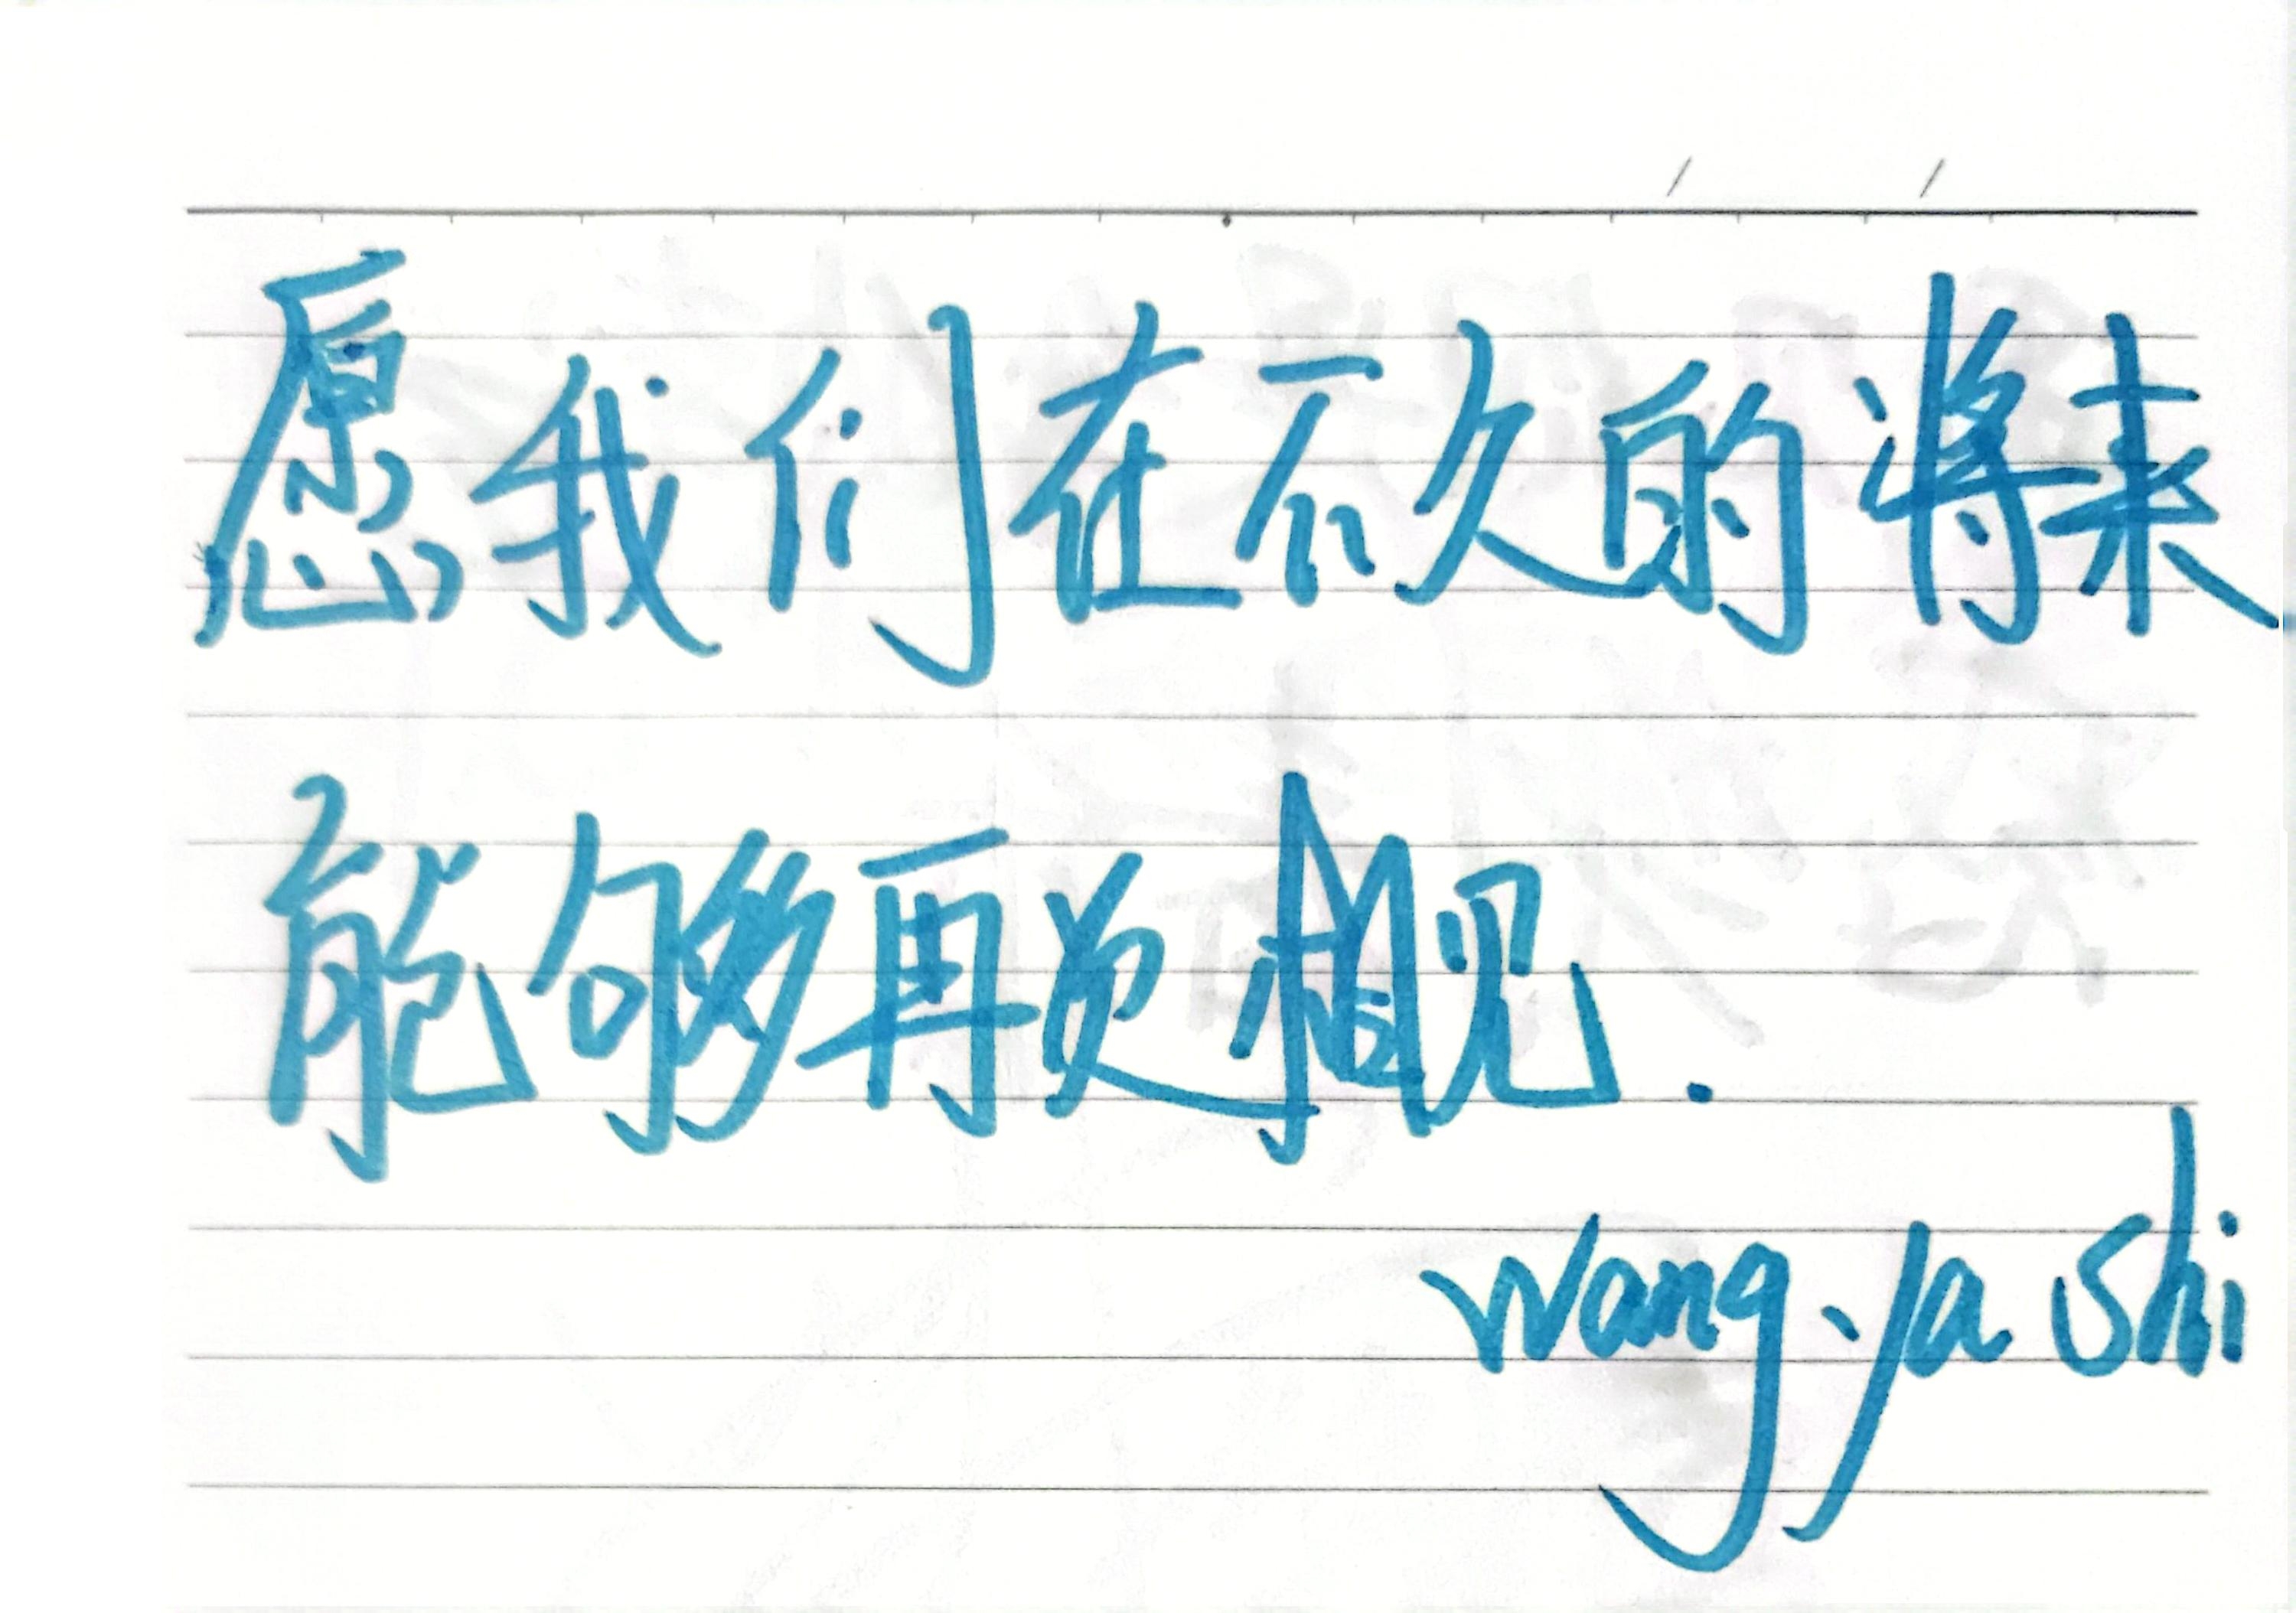 愿我们在不久的将来
能够再次相见.
Wang ya shi